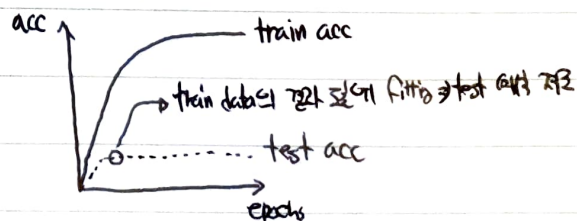 acc
train acc
train data의 결과 fitting → test
test acc
epochs